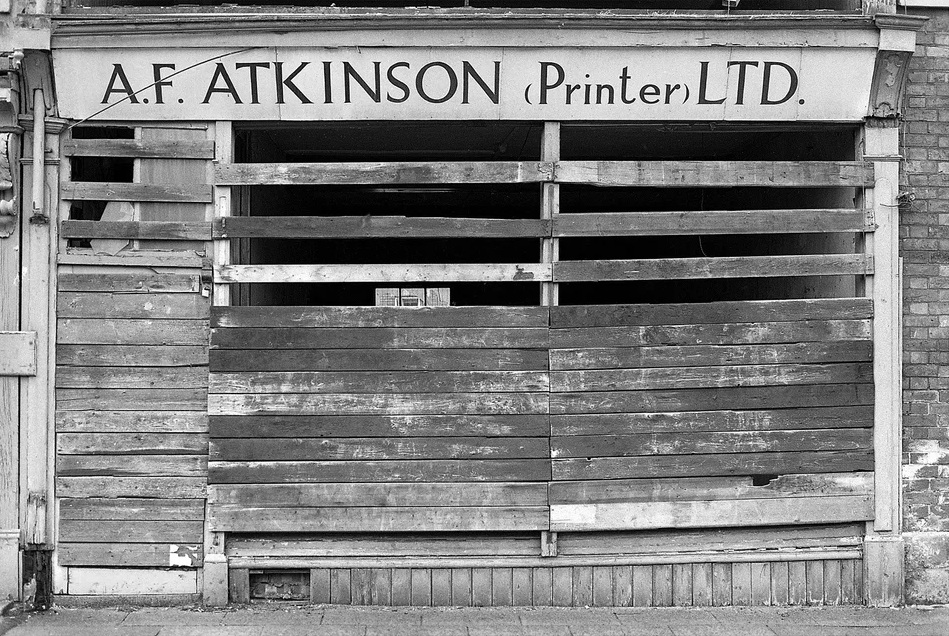 A.F. ATKINSON (Printer) LTD.